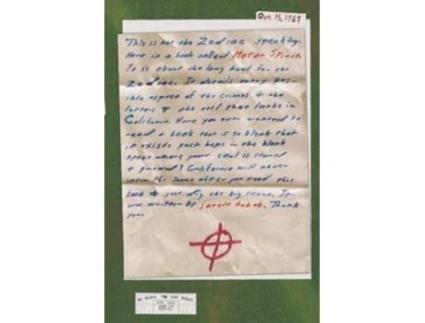 Oct. 15, 1969
"This is not the Zodiac speaking.
Here is a book called Motor Spirit.
It is about the long hunt for the
Zodiac. It details every pos-
sible aspect of the crimes & the
letters & the soil that lurks in
California. Have you ever wanted to
read a book that is so bleak that
it exists perhaps in the blank
space where your soul is stored
& ? California will never
seem the same after you read this
book & just dig the big scene. It
was written by Jarett Kobek. Thank
you.